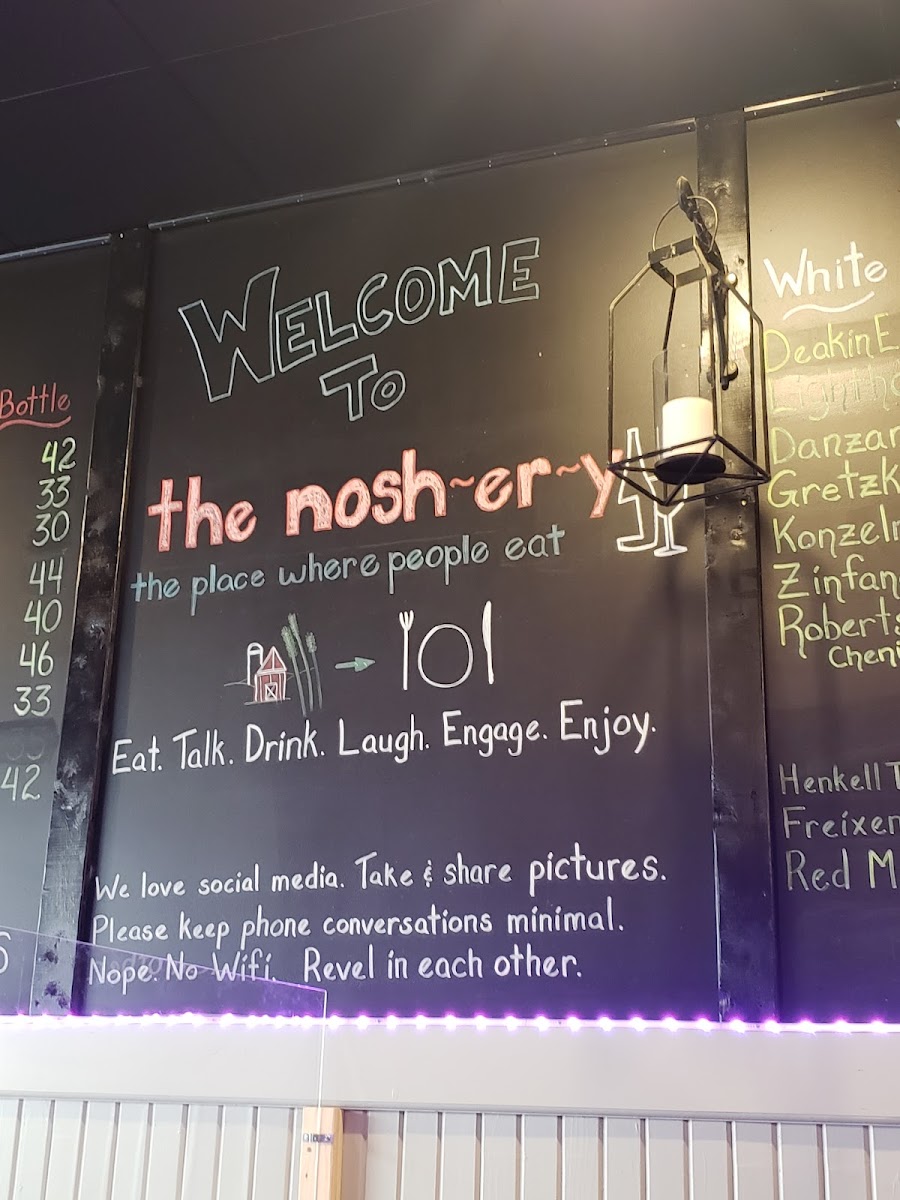 Bottle
42
33
30
44
40
46
33
42
WELCOME
TO
the nosh~er~y
the place where people eat
Eat. Talk. Drink. Laugh. Engage. Enjoy.
We love social media. Take & share pictures.
Please keep phone conversations minimal.
Nope. No Wifi. Revel in each other.
White
Deakin E
Lightho
Danzan
Gretzk
Konzelm
Zinfan
Roberts
Cheni
Henkell T
Freixen
Red M